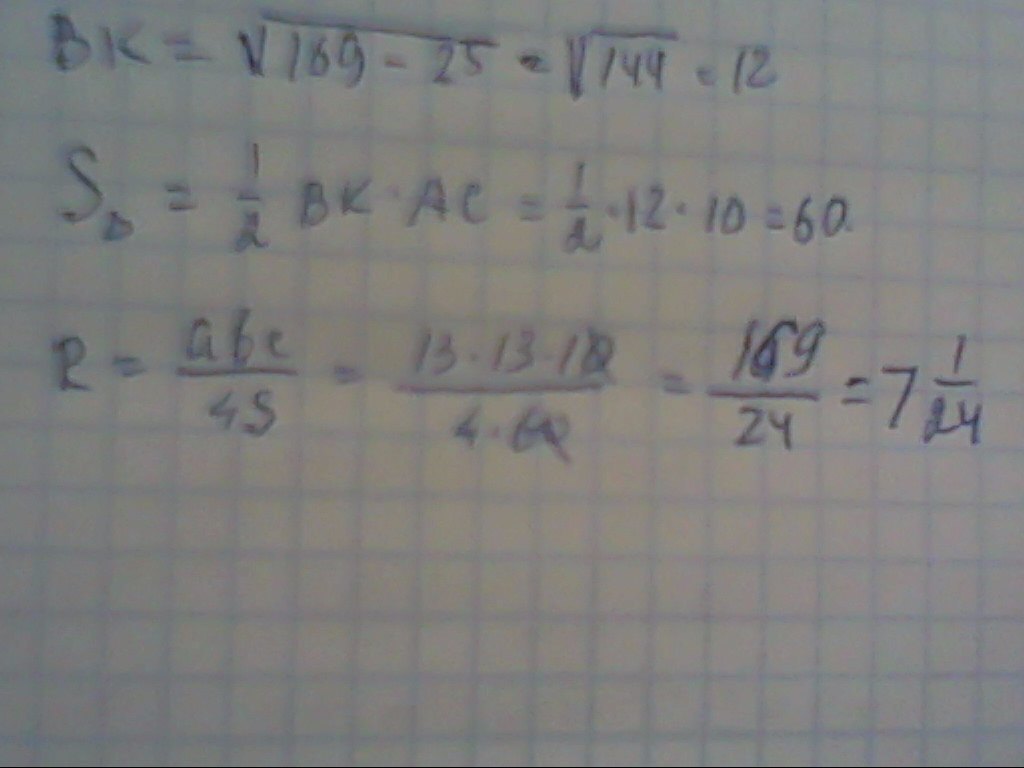 BK = √169 - 25 = √144 = 12
S△ = 1/2 BK · AC = 1/2 · 12 · 10 = 60
R = abc/4S = 13 · 13 · 10/4 · 60 = 169/24 = 7 1/24